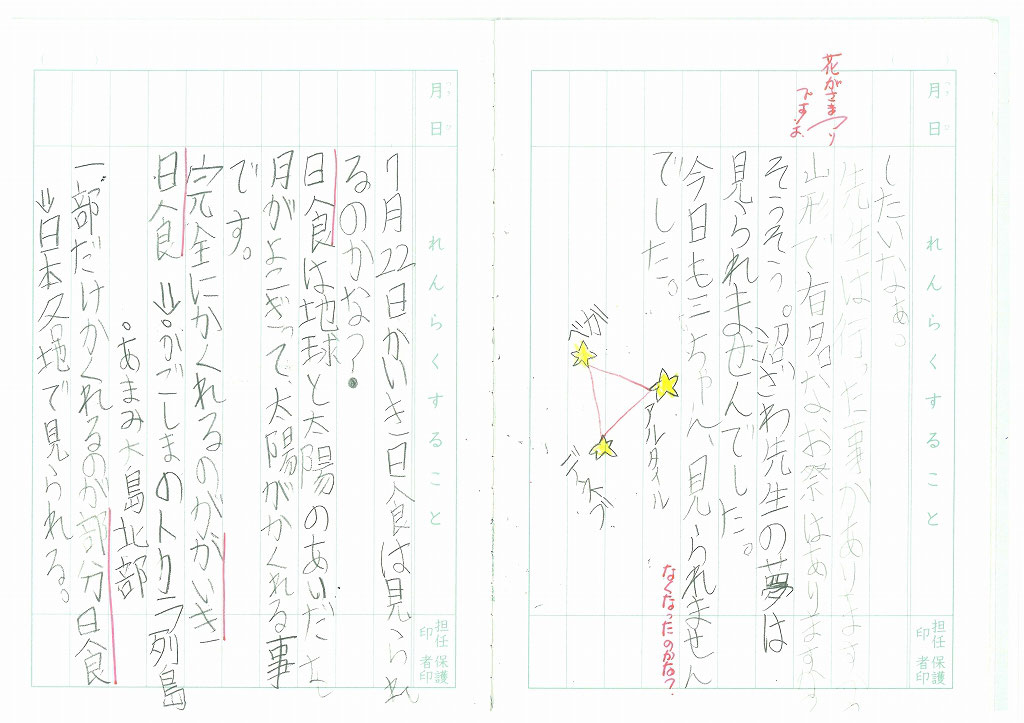 月 日
れんらくすること
担任印
保護者印
花がさまつり
ですよ。
したいなぁ。
先生は行った事がありますか。
山形で有名なお祭はありますか。
そうそう。沼ざわ先生の夢は
見られませんでした。
今日も三ちゃん、見られません
でした。
なくなったのかな?
ベガ
アルタイル
デネブ
月 日
れんらくすること
担任印
保護者印
7月22日かいき日食は見られ
るのかな?
日食は地球と太陽のあいだに
月がよこぎって、太陽がかくれる事
です。
完全にかくれるのがかいき
日食 ⇒。かごしまのトカラ列島
。あまみ大島北部
一部だけかくれるのが部分日食
⇒日本各地で見られる。